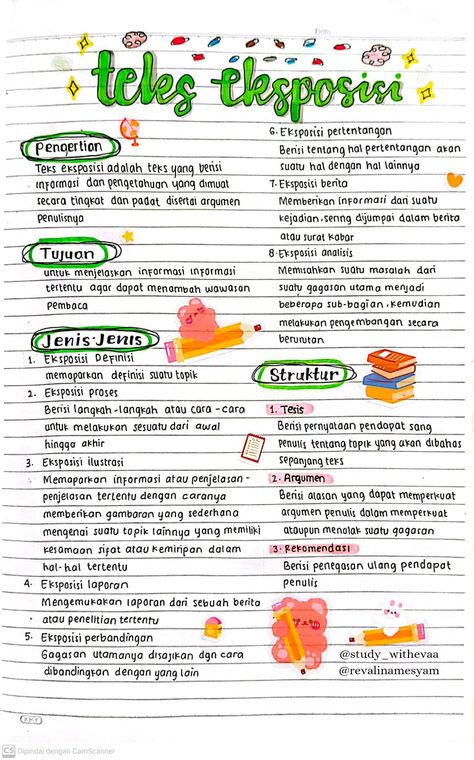 teks eksposisi
Pengertian
Teks eksposisi adalah teks yang berisi
informasi dan pengetahuan yang dimuat
secara tingkat dan padat disertai argumen
penulisnya
Tujuan
untuk menjelaskan informasi informasi
tertentu agar dapat menambah wawasan
Pembaca
Jenis-Jenis
1. Eksposisi Definisi
memaparkan definisi suatu topik
2. Eksposisi proses
Berisi langkah-langkah atau cara-cara
untuk melakukan sesuatu dari awal
hingga akhir
3. Eksposisi ilustrasi
Memaparkan informasi atau penjelasan-
penjelasan tertentu dengan caranya
memberikan gambaran yang sederhana
mengenai suatu topik lainnya yang memiliki
kesamaan sipat atau kemiripan dalam
hal-hal tertentu
4. Eksposisi laporan
Mengemukakan laporan dari sebuah berita
atau penelitian tertentu
5. Eksposisi perbandingan
Gagasan utamanya disajikan dgn cara
dibandingkan dengan yang lain
6. Eksposisi pertentangan
Berisi tentang hal pertentangan akan
suatu hal dengan hal lainnya
7. Eksposisi berita
Memberikan informasi dari suatu
kejadian, sering dijumpai dalam berita
atau surat kabar
8. Eksposisi analisis
Memisahkan suatu masalah dari
suatu gagasan utama menjadi
beberapa sub-bagian, kemudian
melakukan pengembangan secara
berurutan
Struktur
1. Tesis
Berisi pernyataan pendapat sang
penulis tentang topik yang akan dibahas
sepanjang teks
2. Argumen
Berisi alasan yang dapat memperkuat
argumen penulis dalam memperkuat
ataupun menolak suatu gagasan
3. Rekomendasi
Berisi penegasan ulang pendapat
penulis
@study_withevaa
@revalinamesyam
CS Dipindai dengan CamScanner